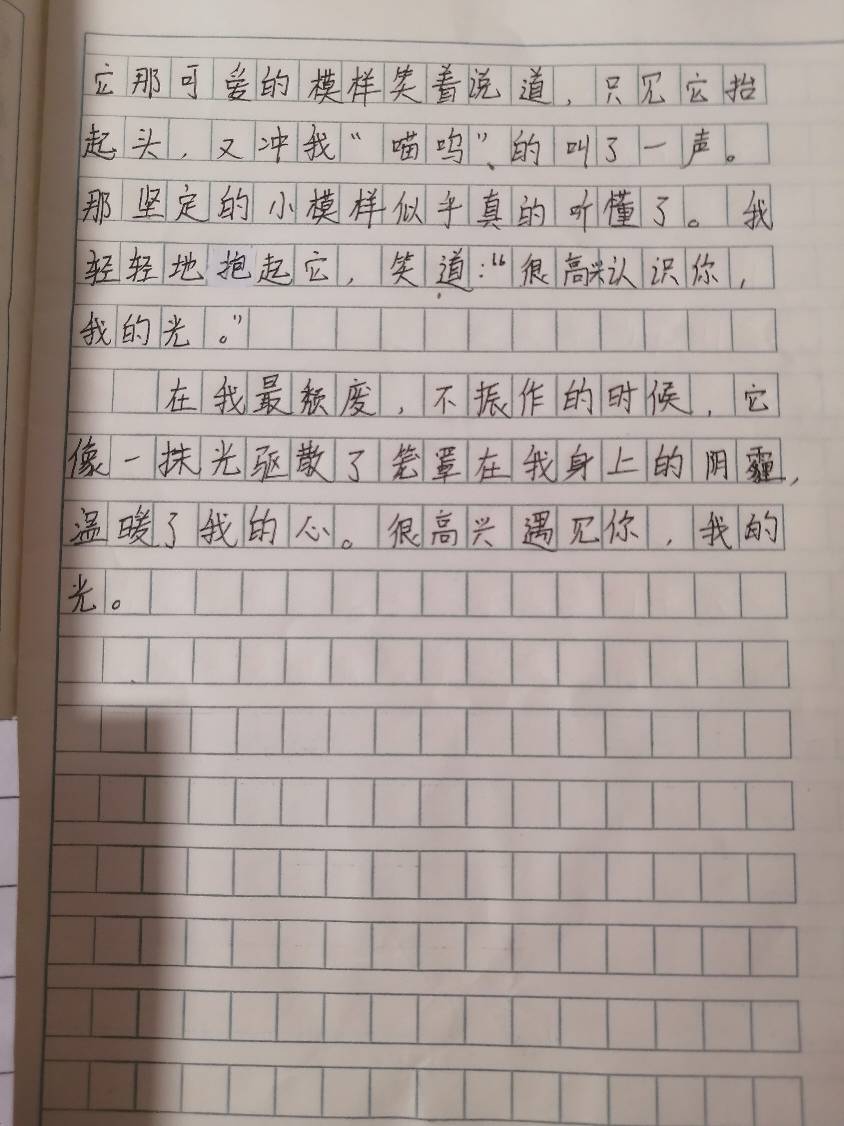 它那可爱的模样笑着说道，只见它抬
起头，又冲我“喵呜”、的叫了一声。
那坚定的小模样似乎真的听懂了。我
轻轻地抱起它，笑道：“很高兴认识你，
我的光。”
在我最颓废，不振作的时候，它
像一抹光驱散了笼罩在我身上的阴霾，
温暖了我的心。很高兴遇见你，我的
光。